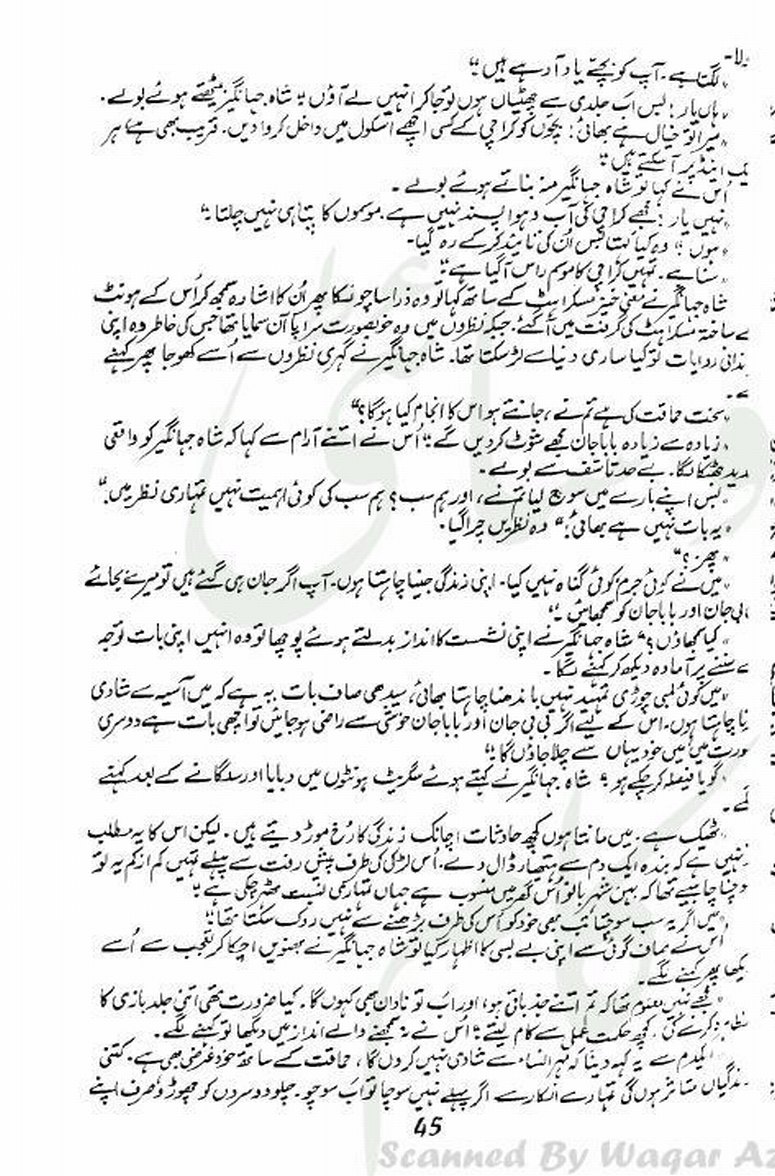 بولا۔
”لگتا ہے۔ آپ کو بچے یاد آ رہے ہیں۔“
”ہاں یار! بس اب جلدی سے چھٹیاں ہوں تو جا کر انہیں لے آؤں۔“ شاہ جہانگیر بیٹھتے ہوئے بولے۔
”میرا تو خیال ہے بھائی! بچوں کو کراچی کے کسی اچھے اسکول میں داخل کروا دیں۔ قریب بھی ہے ہر
اینڈ پر آ سکتے ہیں۔“
اُس نے کہا تو شاہ جہانگیر منہ بناتے ہوئے بولے۔
”نہیں یار! مجھے کراچی کی آب و ہوا پسند نہیں ہے۔ موسموں کا پتا ہی نہیں چلتا۔“
”ہوں!“ وہ کیا کہتا بس اُن کی تائید کر کے رہ گیا۔
”سنا ہے۔ تمہیں کراچی کا موسم راس آ گیا ہے۔“
شاہ جہانگیر نے معنی خیز مسکراہٹ کے ساتھ کہا تو وہ ذرا سا چونکا پھر اُن کا اشارہ سمجھ کر اُس کے ہونٹ
بے ساختہ مسکراہٹ کی گرفت میں آ گئے۔ جبکہ نظروں میں وہ خوبصورت سراپا آن سمایا تھا جس کی خاطر وہ اپنی
خاندانی روایات تو کیا ساری دنیا سے لڑ سکتا تھا۔ شاہ جہانگیر نے گہری نظروں سے اُسے کھوجا پھر کہنے
لگے۔
”سخت حماقت کی ہے تم نے، جانتے ہو اس کا انجام کیا ہو گا؟“
”زیادہ سے زیادہ بابا جان مجھے شوٹ کر دیں گے۔“ اُس نے اتنے آرام سے کہا کہ شاہ جہانگیر کو واقعی
شدید جھٹکا لگا۔ بے حد تاسف سے بولے۔
”بس اپنے بارے میں سوچ لیا تم نے، اور ہم سب؟ ہم سب کی کوئی اہمیت نہیں تمہاری نظر میں۔“
”یہ بات نہیں ہے بھائی!“ وہ نظریں چرا گیا۔
”پھر؟“
”میں نے کوئی جرم کوئی گناہ نہیں کیا۔ اپنی زندگی جینا چاہتا ہوں۔ آپ اگر جان ہی گئے ہیں تو میرے بجائے
بی بی جان اور بابا جان کو سمجھائیں۔“
”کیا سمجھاؤں؟“ شاہ جہانگیر نے اپنی نشست کا انداز بدلتے ہوئے پوچھا تو وہ انہیں اپنی بات توجہ
سے سننے پر آمادہ دیکھ کر کہنے لگا۔
”میں کوئی لمبی چوڑی تمہید نہیں باندھنا چاہتا بھائی، سیدھی صاف بات یہ ہے کہ میں آسیہ سے شادی
کرنا چاہتا ہوں۔ اس کے لیے اگر بی بی جان اور بابا جان خوشی سے راضی ہو جائیں تو اچھی بات ہے دوسری
صورت میں میں خود یہاں سے چلا جاؤں گا۔“
”گویا فیصلہ کر چکے ہو۔“ شاہ جہانگیر نے کہتے ہوئے سگریٹ ہونٹوں میں دبایا اور سلگانے کے بعد کہنے
لگے۔
”ٹھیک ہے۔ میں مانتا ہوں کچھ حادثات اچانک زندگی کا رُخ موڑ دیتے ہیں۔ لیکن اس کا یہ مطلب
نہیں ہے کہ بندہ ایک دم سے ہتھیار ڈال دے۔ اُس لڑکی کی طرف پیش رفت سے پہلے تمہیں کم از کم یہ تو
سوچنا چاہیے تھا کہ بہن شہر بانو اُس گھر میں منسوب ہے جہاں تمہاری نسبت ٹھہر چکی ہے۔“
”میں اگر یہ سب سوچتا تب بھی خود کو اُس کی طرف بڑھنے سے نہیں روک سکتا تھا۔“
اُس نے صاف گوئی سے اپنی بے بسی کا اظہار کیا تو شاہ جہانگیر نے بھنویں اچکا کر تعجب سے اُسے
دیکھا پھر کہنے لگے۔
”مجھے نہیں معلوم تھا کہ تم اتنے جذباتی ہو، اور اب تو نادان بھی کہوں گا۔ کیا ضرورت تھی اتنی جلد بازی کا
مظاہرہ کرنے کی، کچھ حکمت عملی سے کام لیتے۔“ اُس نے نہ سمجھنے والے انداز میں دیکھا تو کہنے لگے۔
”ایکدم سے یہ کہہ دینا کہ مہرالنساء سے شادی نہیں کروں گا، حماقت کے ساتھ خود غرضی بھی ہے۔ کتنی
زندگیاں متاثر ہوں گی تمہارے انکار سے۔ اگر پہلے نہیں سوچا تو اب سوچو۔ چلو دوسروں کو چھوڑو صرف اپنے
45
Scanned By Waqar Az